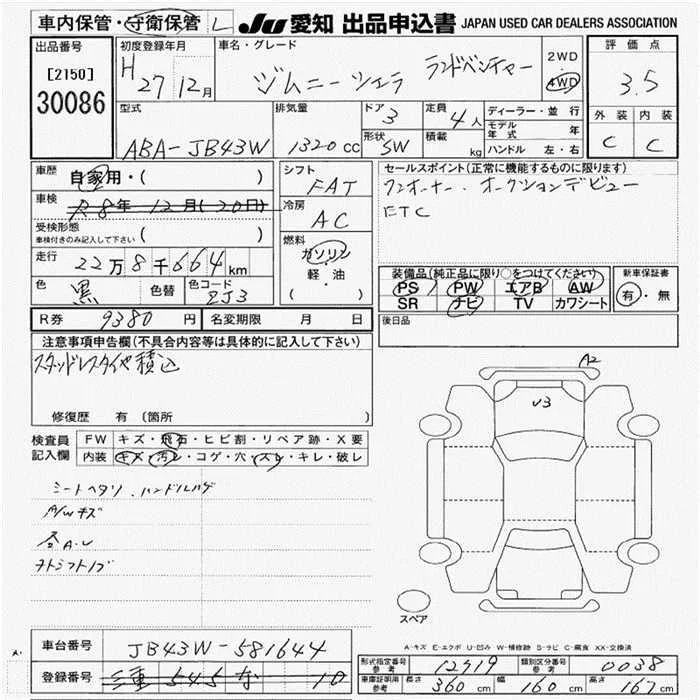 車内保管・守衛保管 L JU 愛知 出品申込書 JAPAN USED CAR DEALERS ASSOCIATION
出品番号 [2150] 30086
初度登録年月 H27 12月
車名・グレード ジムニーシエラ ランドベンチャー 2WD 4WD
評価点 3.5
外装 内装 C C
型式 ABA-JB43W
排気量 1320cc
ドア 3
形状 SW
定員 4人
積載 kg
ディーラー・並行
モデル年式 年
ハンドル 左・右
車歴 自家用・( )
車検 R8年12月(20日)
受検形態 車検付きのみ記入して下さい ( )
走行 22万8千664km
色 黒 色替 色コード 2J3
シフト FAT
冷房 AC
燃料 ガソリン 軽・油 ( ・ )
セールスポイント(正常に機能するものに限ります)
ワンオーナー・オークションデビュー
ETC
装備品(純正品に限り○をつけてください)
PS PW エアB AW
SR ナビ TV カワシート
新車保証書 有・無
R券 9380円 名変期限 月 日
後日品
注意事項申告欄(不具合内容等は具体的に記入して下さい)
スタッドレスタイヤ積込
修復歴 有 (箇所 )
検査員記入欄
FW キズ・飛石・ヒビ割・リペア跡・X要
内装 キズ・汚レ・コゲ・穴・スレ・キレ・破レ
シートヘタリ.ハンドルハゲ
A/Wキズ
各A.U
A2
U3
スペア
A-キズ E-エクボ U-凹み W-補修跡 S-サビ C-腐食 XX-交換済
車台番号 JB43W-581644
登録番号 三重 545 な 10
型式指定番号 参考 12919 類別区分番号 参考 0038
車庫証明用 参考 長さ 360cm 幅 160cm 高さ 167cm